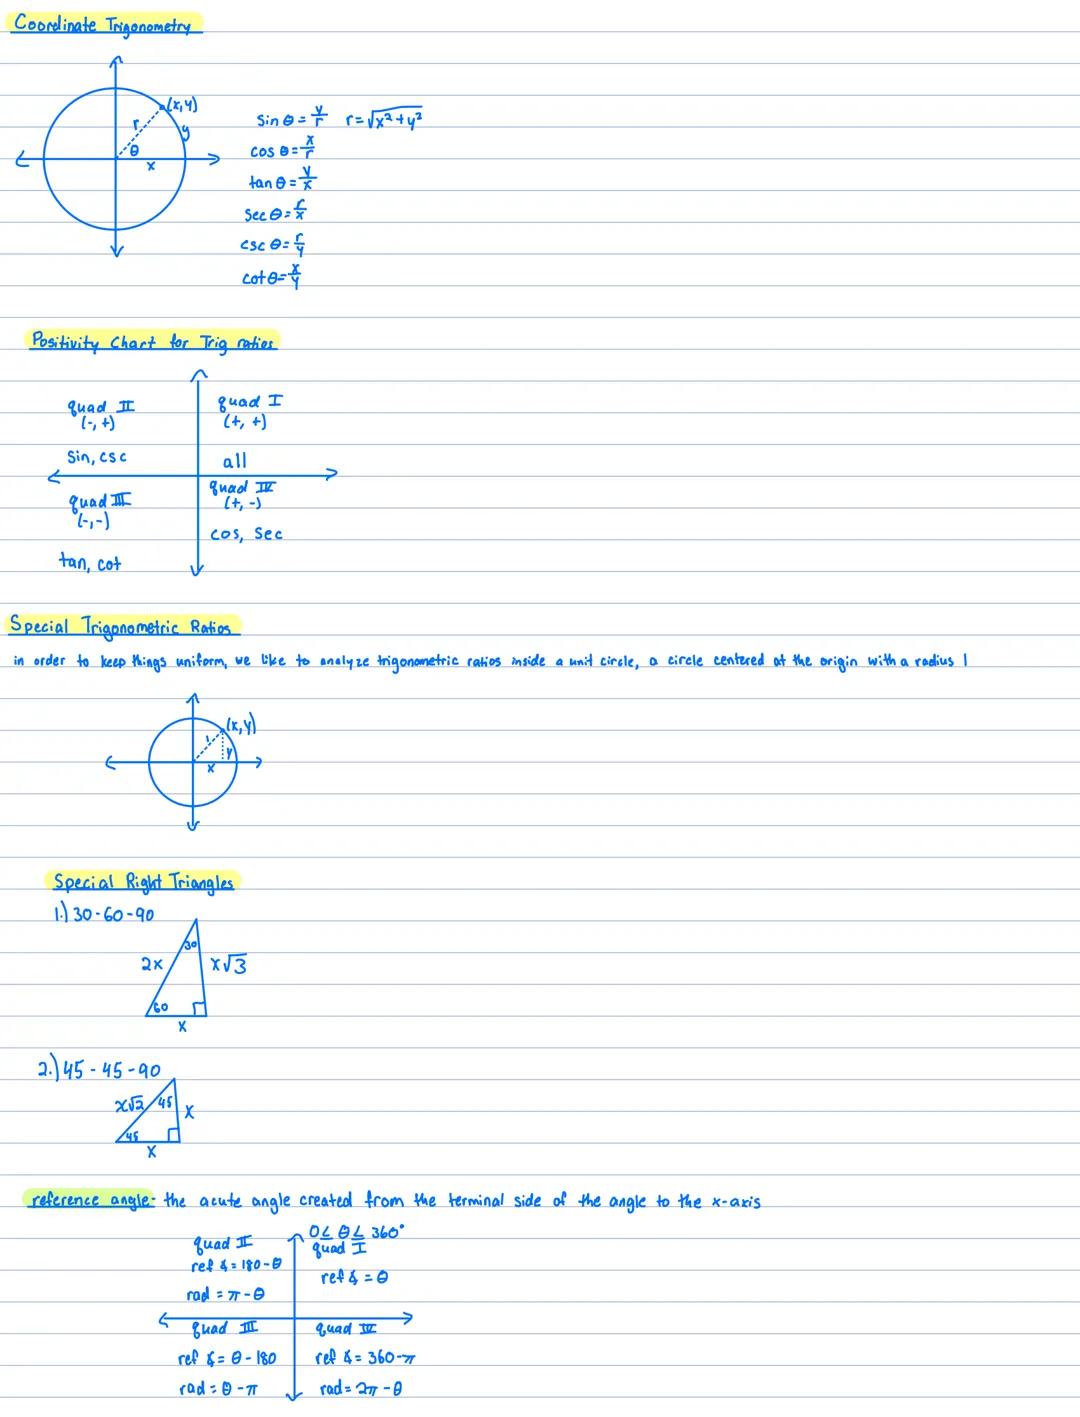 Coordinate Trigonometry
(x,y)
r
y
θ
x
sin θ = y/r r = √x²+y²
cos θ = x/r
tan θ = y/x
sec θ = r/x
csc θ = r/y
cot θ = x/y
Positivity Chart for Trig ratios
quad II
(-, +)
sin, csc
quad I
(+, +)
all
quad III
(-,-)
tan, cot
quad IV
(+, -)
cos, sec
Special Trigonometric Ratios
in order to keep things uniform, we like to analyze trigonometric ratios inside a unit circle, a circle centered at the origin with a radius 1
(x,y)
1
y
x
Special Right Triangles
1.) 30-60-90
30
2x
x√3
60
x
2.) 45-45-90
x√2
45
x
45
x
reference angle- the acute angle created from the terminal side of the angle to the x-axis
0≤ θ ≤ 360°
quad II
ref ∡ = 180-θ
rad = π-θ
quad I
ref ∡ = θ
quad III
ref ∡ = θ-180
rad = θ-π
quad IV
ref ∡ = 360-π
rad = 2π-θ